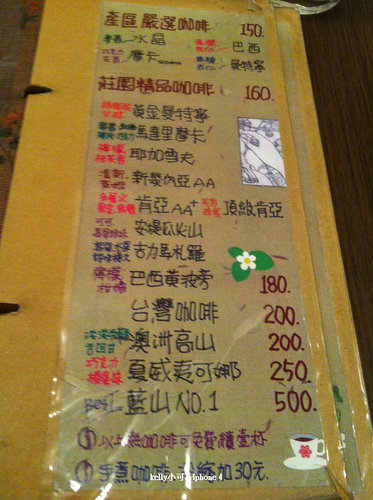 產區嚴選咖啡 150.
水晶 巴西
摩卡 曼特寧
莊園精品咖啡 160.
黃金曼特寧
馬達里摩卡
檸檬 耶加雪夫
清新 新幾內亞AA
肯亞AA+ 頂級肯亞
安堤瓜火山
古力馬札羅
檸檬 巴西黃波旁 180.
台灣咖啡 200.
澳洲高山 200.
巧克力 夏威夷可娜 250.
Best 藍山NO.1 500.
① 以上熱咖啡可免費續壹杯
② 手煮咖啡 加30元.
kelly小可 iphone 4